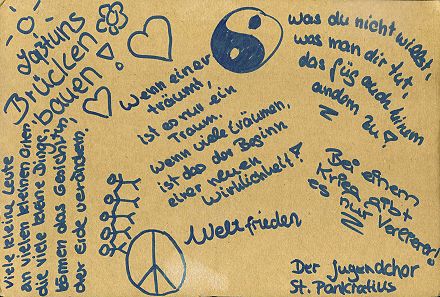 Laßt uns
Brücken
bauen!
Wenn einer
träumt,
ist es nur ein
Traum.
Wenn viele träumen,
ist das der Beginn
einer neuen
Wirklichkeit!
Was du nicht willst,
was man dir tut,
das füg auch keinem
andern zu!
Bei einem
Krieg gibt
es nur Verlierer!
Viele kleine Leute
an vielen kleinen Orten,
die viele kleine Dinge tun,
können das Gesicht
der Erde verändern.
Weltfrieden
Der Jugendchor
St. Pankratius